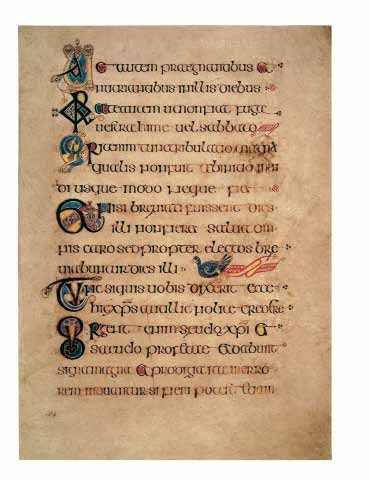 Uae autem praegnantibus et
nutrientibus in illis diebus
Orate autem ut non fiat fuga
uestra hieme uel sabbato
Erit enim tunc tribulatio magna
qualis non fuit ab initio
di usque modo neque
nisi breuiati fuissent dies
illi non fieret salua om
nis caro sed propter electos bre
uiabuntur dies illi
Tunc si quis uobis dixerit ecce
hic xps aut illic nolite credere
Surgent enim seudo xpi et
seudo profetae et dabunt
signa magna et prodigia ita ut in erro
rem si fieri potest etiam